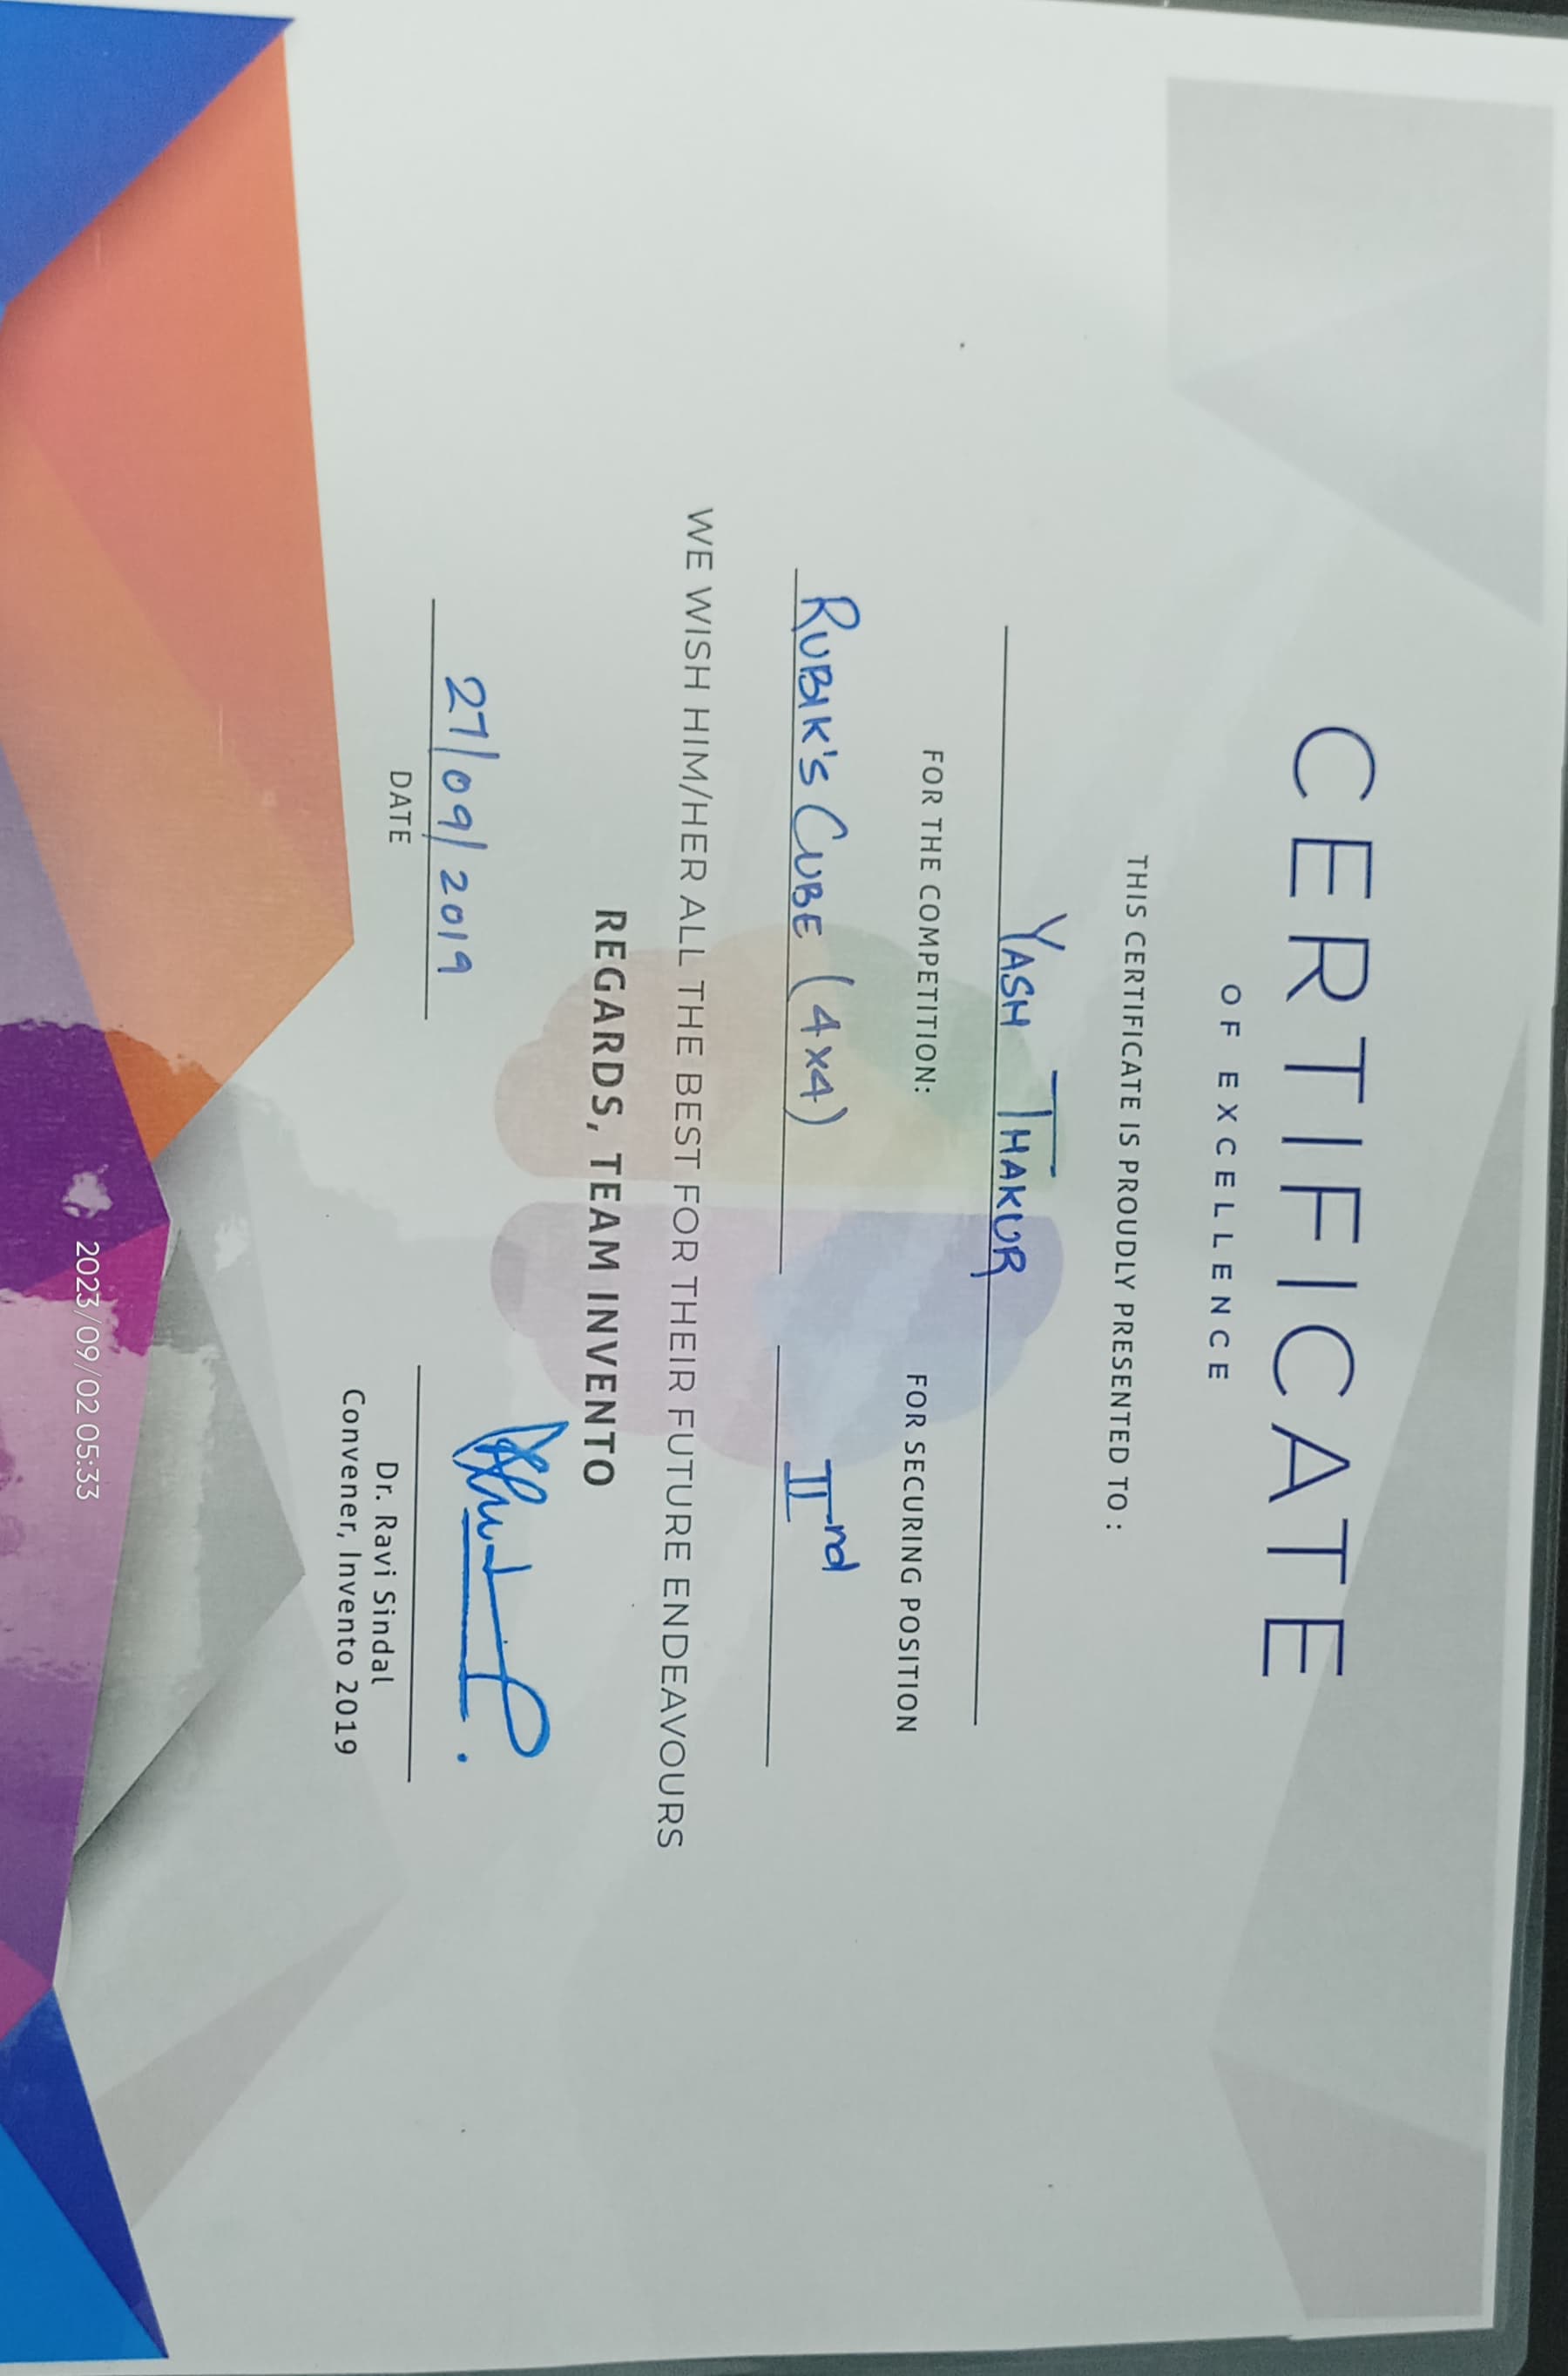 CERTIFICATE
OF EXCELLENCE
THIS CERTIFICATE IS PROUDLY PRESENTED TO :
YASH THAKUR
FOR THE COMPETITION: FOR SECURING POSITION
RUBIK'S CUBE (4x4) IInd
WE WISH HIM/HER ALL THE BEST FOR THEIR FUTURE ENDEAVOURS
REGARDS, TEAM INVENTO
27/09/2019
DATE
Dr. Ravi Sindal
Convener, Invento 2019
2023/09/02 05:33